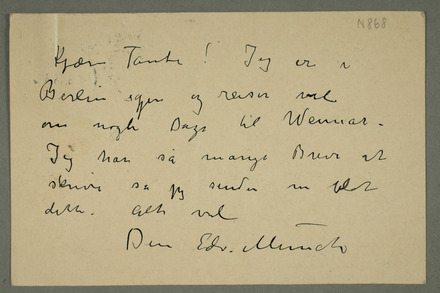 N868
Kjære Tante! Jeg er i
Berlin igen og reiser vel
om nogle Dage til Weimar –
Jeg har så mange Breve at
skrive så jeg sender nu blot
dette – Alt vel
Din Edv. Munch